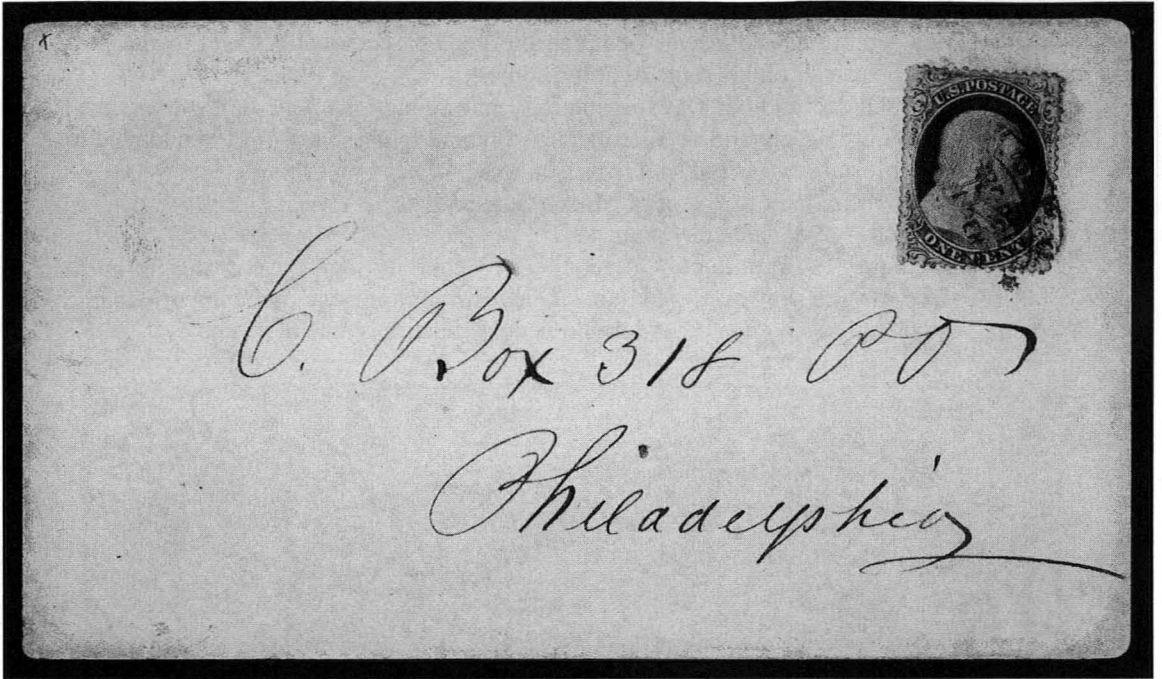 x
U.S. POSTAGE
ONE CENT
C. Box 318 P O
Philadelphia